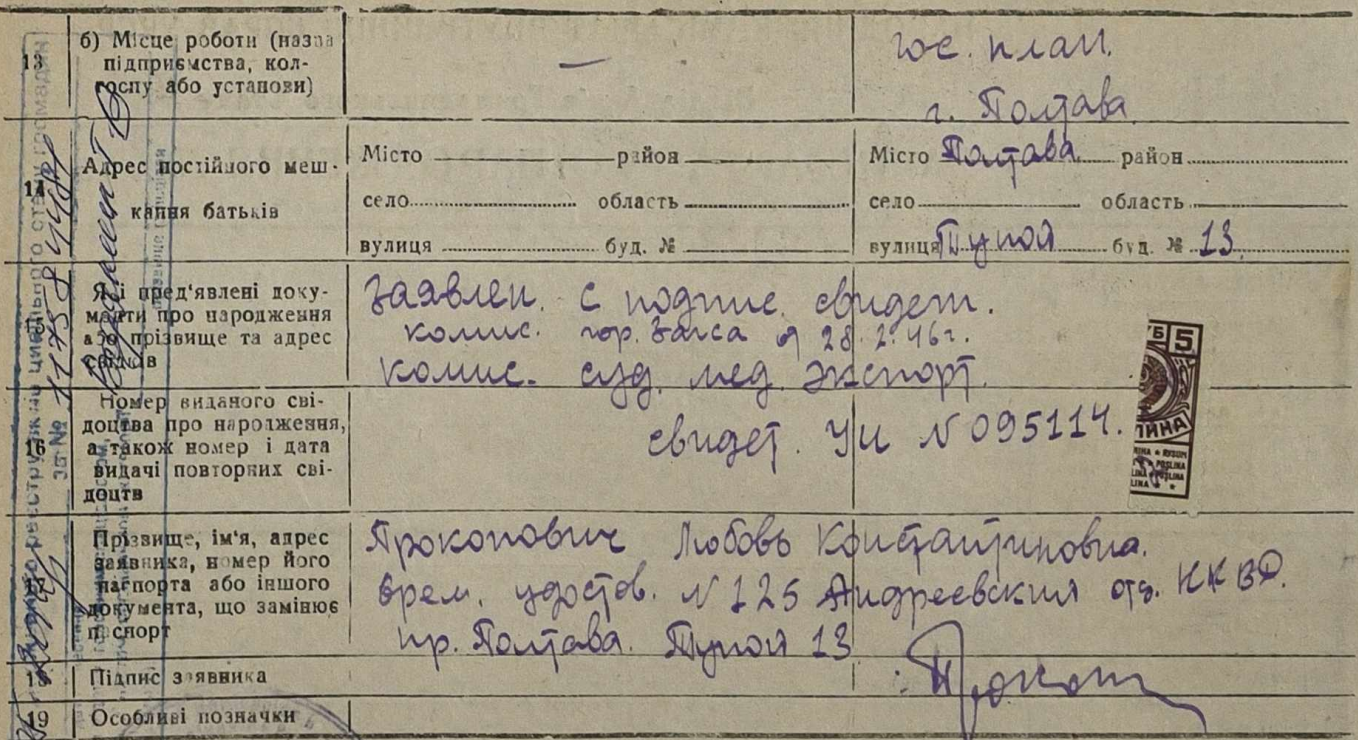 13
б) Місце роботи (назва
підприємства, кол-
госпу або установи)
—
гос. план.
г. Полтава
14
Адрес постійного меш-
кання батьків
Місто район
село область
вулиця буд. №
Місто Полтава район
село область
вулиця Тупой буд. № 13
15
Які пред'явлені доку-
менти про народження
або прізвище та адрес
свідків
Заявлен. с подпис. свидет.
комис. гор. Загса от 28.2.46г.
комис. суд. мед. экспорт.
16
Номер виданого сві-
доцтва про народження,
а також номер і дата
видачі повторних сві-
доцтв
свидет. УИ N 095114.
5
17
Прізвище, ім'я, адрес
заявника, номер його
паспорта або іншого
документа, що замінює
паспорт
Прокопович Любовь Константиновна.
врем. удостов. N 125 Андреевский отд. НКВД.
пр. Полтава. Тупой 13
18
Підпис заявника
Прокоп
19
Особливі позначки
за №